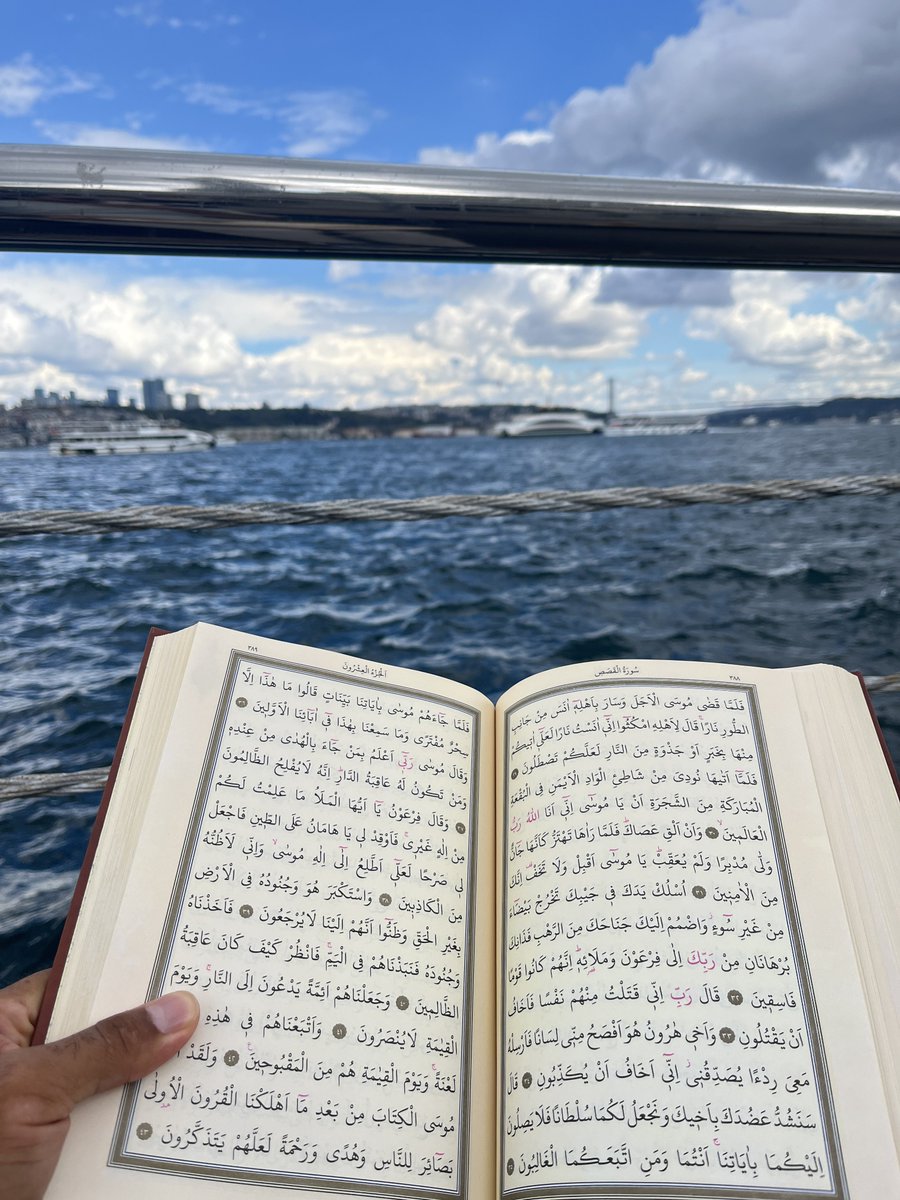 ٣٨٨ سُورَةُ الْقَصَصِ
فَلَمَّا قَضٰى مُوسَى الْاَجَلَ وَسَارَ بِاَهْلِهٖٓ اٰنَسَ مِنْ جَانِبِ
الطُّورِ نَارًاۚ قَالَ لِاَهْلِهِ امْكُثُٓوا اِنّٖٓي اٰنَسْتُ نَارًا لَعَلّٖٓي اٰتٖيكُمْ
مِنْهَا بِخَبَرٍ اَوْ جَذْوَةٍ مِنَ النَّارِ لَعَلَّكُمْ تَصْطَلُونَ ﴿٢٩﴾
فَلَمَّٓا اَتٰيهَا نُودِيَ مِنْ شَاطِئِ الْوَادِ الْاَيْمَنِ فِي الْبُقْعَةِ
الْمُبَارَكَةِ مِنَ الشَّجَرَةِ اَنْ يَا مُوسٰٓى اِنّٖٓي اَنَا اللّٰهُ رَبُّ
الْعَالَمٖينَۙ ﴿٣٠﴾ وَاَنْ اَلْقِ عَصَاكَۜ فَلَمَّا رَاٰهَا تَهْتَزُّ كَاَنَّهَا جَٓانٌّ
وَلّٰى مُدْبِرًا وَلَمْ يُعَقِّبْۜ يَا مُوسٰٓى اَقْبِلْ وَلَا تَخَفْ۠ اِنَّكَ
مِنَ الْاٰمِنٖينَ ﴿٣١﴾ اُسْلُكْ يَدَكَ فٖي جَيْبِكَ تَخْرُجْ بَيْضَٓاءَ
مِنْ غَيْرِ سُٓوءٍۘ وَاضْمُمْ اِلَيْكَ جَنَاحَكَ مِنَ الرَّهْبِ فَذَانِكَ
بُرْهَانَانِ مِنْ رَبِّكَ اِلٰى فِرْعَوْنَ وَمَلَا۬ئِهٖۜ اِنَّهُمْ كَانُوا قَوْمًا
فَاسِقٖينَ ﴿٣٢﴾ قَالَ رَبِّ اِنّٖي قَتَلْتُ مِنْهُمْ نَفْسًا فَاَخَافُ
اَنْ يَقْتُلُونِ ﴿٣٣﴾ وَاَخٖي هٰرُونُ هُوَ اَفْصَحُ مِنّٖي لِسَانًا فَاَرْسِلْهُ
مَعِيَ رِدْءًا يُصَدِّقُنٖٓيۘ اِنّٖٓي اَخَافُ اَنْ يُكَذِّبُونِ ﴿٣٤﴾ قَالَ
سَنَشُدُّ عَضُدَكَ بِاَخٖيكَ وَنَجْعَلُ لَكُمَا سُلْطَانًا فَلَا يَصِلُونَ
اِلَيْكُمَاۚ بِاٰيَاتِنَاۚ اَنْتُمَا وَمَنِ اتَّبَعَكُمَا الْغَالِبُونَ ﴿٣٥﴾
اَلْجُزْءُ الْعِشْرُونَ ٣٨٩
فَلَمَّا جَٓاءَهُمْ مُوسٰى بِاٰيَاتِنَا بَيِّنَاتٍ قَالُوا مَا هٰذَٓا اِلَّا
سِحْرٌ مُفْتَرًى وَمَا سَمِعْنَا بِهٰذَا فٖٓي اٰبَٓائِنَا الْاَوَّلٖينَ ﴿٣٦﴾
وَقَالَ مُوسٰى رَبّٖٓي اَعْلَمُ بِمَنْ جَٓاءَ بِالْهُدٰى مِنْ عِنْدِهٖ
وَمَنْ تَكُونُ لَهُ عَاقِبَةُ الدَّارِۜ اِنَّهُ لَا يُفْلِحُ الظَّالِمُونَ
﴿٣٧﴾ وَقَالَ فِرْعَوْنُ يَٓا اَيُّهَا الْمَلَاُ مَا عَلِمْتُ لَكُمْ
مِنْ اِلٰهٍ غَيْرٖيۚ فَاَوْقِدْ لٖي يَا هَامَانُ عَلَى الطّٖينِ فَاجْعَلْ
لٖي صَرْحًا لَعَلّٖٓي اَطَّلِعُ اِلٰٓى اِلٰهِ مُوسٰىۙ وَاِنّٖي لَاَظُنُّهُ
مِنَ الْكَاذِبٖينَ ﴿٣٨﴾ وَاسْتَكْبَرَ هُوَ وَجُنُودُهُ فِي الْاَرْضِ
بِغَيْرِ الْحَقِّ وَظَنُّٓوا اَنَّهُمْ اِلَيْنَا لَا يُرْجَعُونَ ﴿٣٩﴾ فَاَخَذْنَاهُ
وَجُنُودَهُ فَنَبَذْنَاهُمْ فِي الْيَمِّۚ فَانْظُرْ كَيْفَ كَانَ عَاقِبَةُ
الظَّالِمٖينَ ﴿٤٠﴾ وَجَعَلْنَاهُمْ اَئِمَّةً يَدْعُونَ اِلَى النَّارِۚ وَيَوْمَ
الْقِيٰمَةِ لَا يُنْصَرُونَ ﴿٤١﴾ وَاَتْبَعْنَاهُمْ فٖي هٰذِهِ
لَعْنَةًۚ وَيَوْمَ الْقِيٰمَةِ هُمْ مِنَ الْمَقْبُوحٖينَ ﴿٤٢﴾ وَلَقَدْ
مُوسَى الْكِتَابَ مِنْ بَعْدِ مَٓا اَهْلَكْنَا الْقُرُونَ الْاُو۫لٰى
بَصَٓائِرَ لِلنَّاسِ وَهُدًى وَرَحْمَةً لَعَلَّهُمْ يَتَذَكَّرُونَ ﴿٤٣﴾